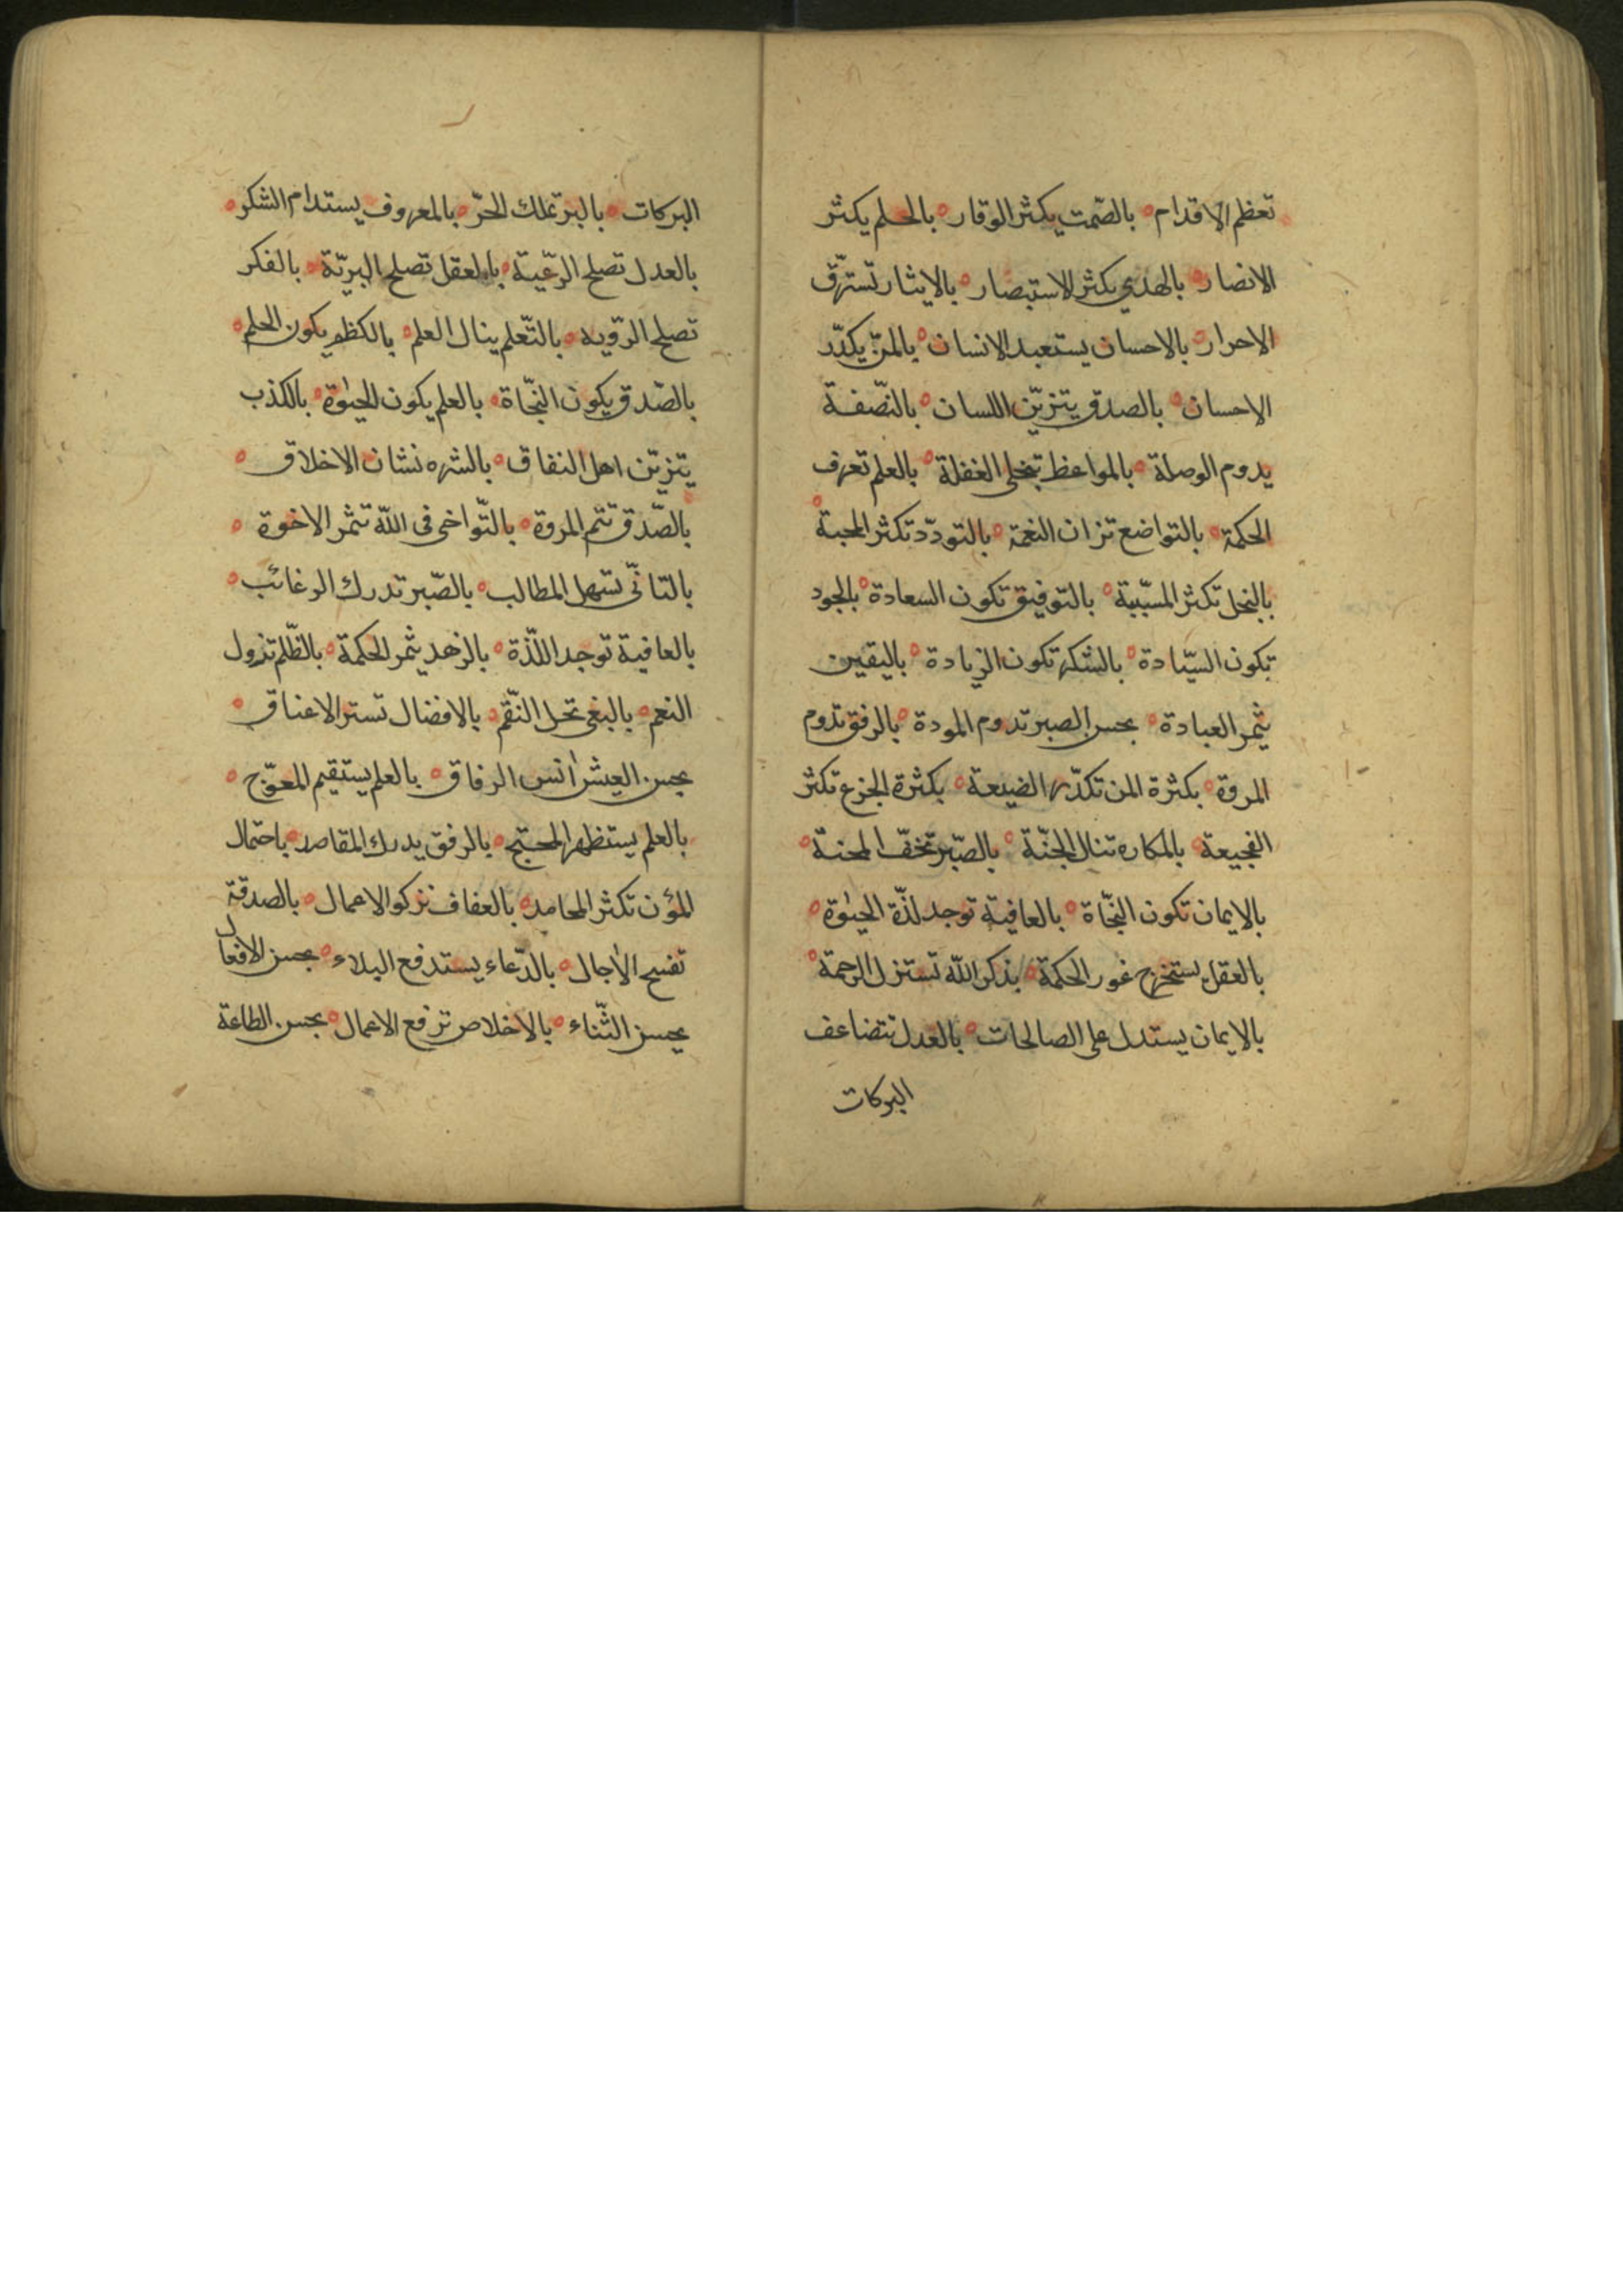 تعظم الاقدام بالصّمت يكثر الوقار بالحلم يكثر
الانصار بالهدي يكثر الاستبصار بالايثار تسترّق
الاحرار بالاحسان يستعبد الانسان بالمنّ يكدّر
الاحسان بالصدق يتزيّن اللسان بالنّصفة
يدوم الوصلة بالمواعظ تنجلى الغفلة بالعلم تعرف
الحكمة بالتواضع تزان النعمة بالتودّد تكثر المحبة
بالبخل تكثر المسبّبة بالتوفيق تكون السعادة بالجود
تكون السيّادة بالشكر تكون الزيادة باليقين
يثمر العبادة بحسن الصبر تدوم المودة بالرفق تدوم
المروة بكثرة المن تكدّر الضيعة بكثرة الجزع تكثر
الفجيعة بالمكاره تنال الجنّة بالصّبر تخفّ المحنة
بالايمان تكون النجّاة بالعافية توجد لذّة الحيوة
بالعقل يستخرج غور الحكمة بذكر اللّه تستنزل الرحمة
بالايمان يستدل على الصالحات بالعدل تتضاعف
البركات
البركات بالبر تملك الحرّ بالمعروف يستدام الشكر
بالعدل تصلح الرعّية بالعقل تصلح البريّة بالفكر
تصلح الروّيه بالتّعلم ينال العلم بالكظم يكون الحلم
بالصّدق يكون النجّاة بالعلم يكون الحيوة بالكذب
يتزيّن اهل النفاق بالشره نشان الاخلاق
بالصّدق تتم المروة بالتّواخى فى اللّه تثمر الاخوة
بالتانّى تسهل المطالب بالصّبر تدرك الرغائب
بالعافية توجد اللّذة بالزهد يثمر الحكمة بالظّلم تزول
النعم بالبغى تحل النّقم بالافضال تستر الاعناق
بحسن العيش انس الرفاق بالعلم يستقيم المعوّج
بالعلم يستظهر المحتج بالرفق يدرك المقاصد باحتمال
المؤن تكثر المحامد بالعفاف تزكو الاعمال بالصدقة
تفسح الاجال بالدّعاء يستدفع البلاء بحسن الافعال
يحسن الثّناء بالاخلاص ترفع الاعمال بحسن الطاعة